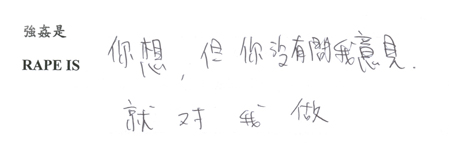 強姦是
RAPE IS
你想，但你沒有問我意見.
就对我做